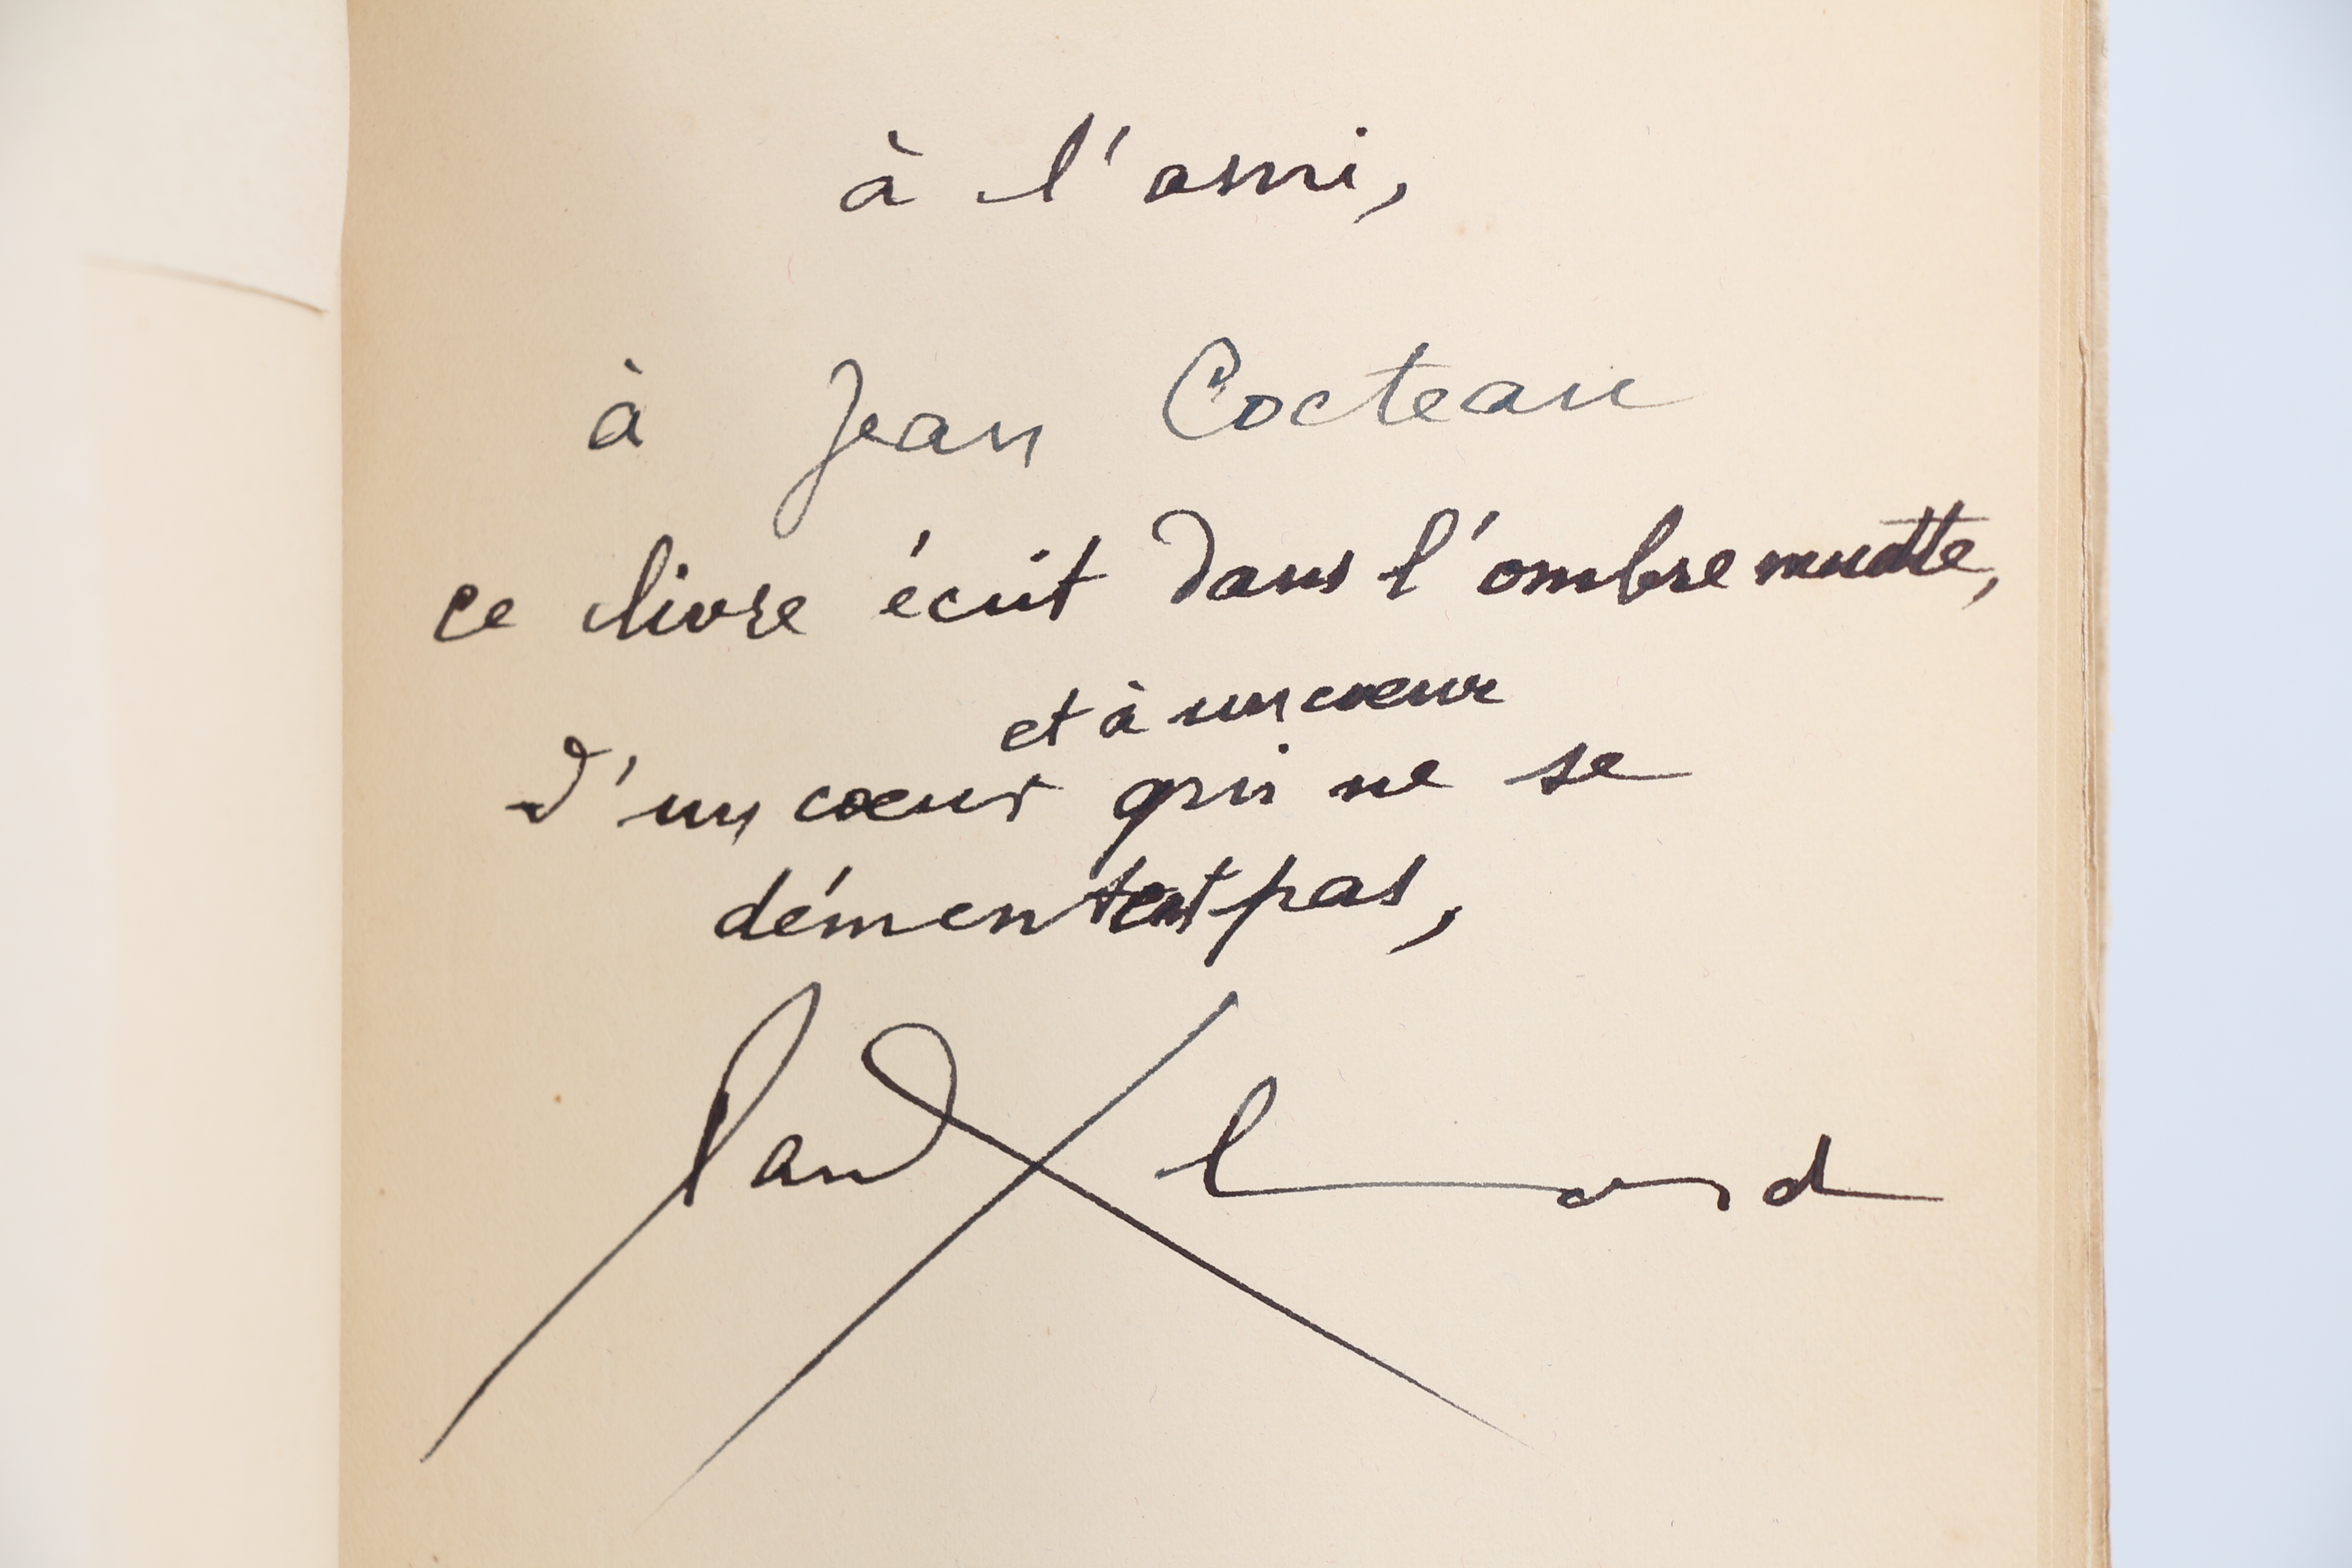 à l'ami,
à Jean Cocteau
ce livre écrit dans l'ombre
et à un cœur
d'un cœur qui ne se
démentent pas,
Paul Eluard